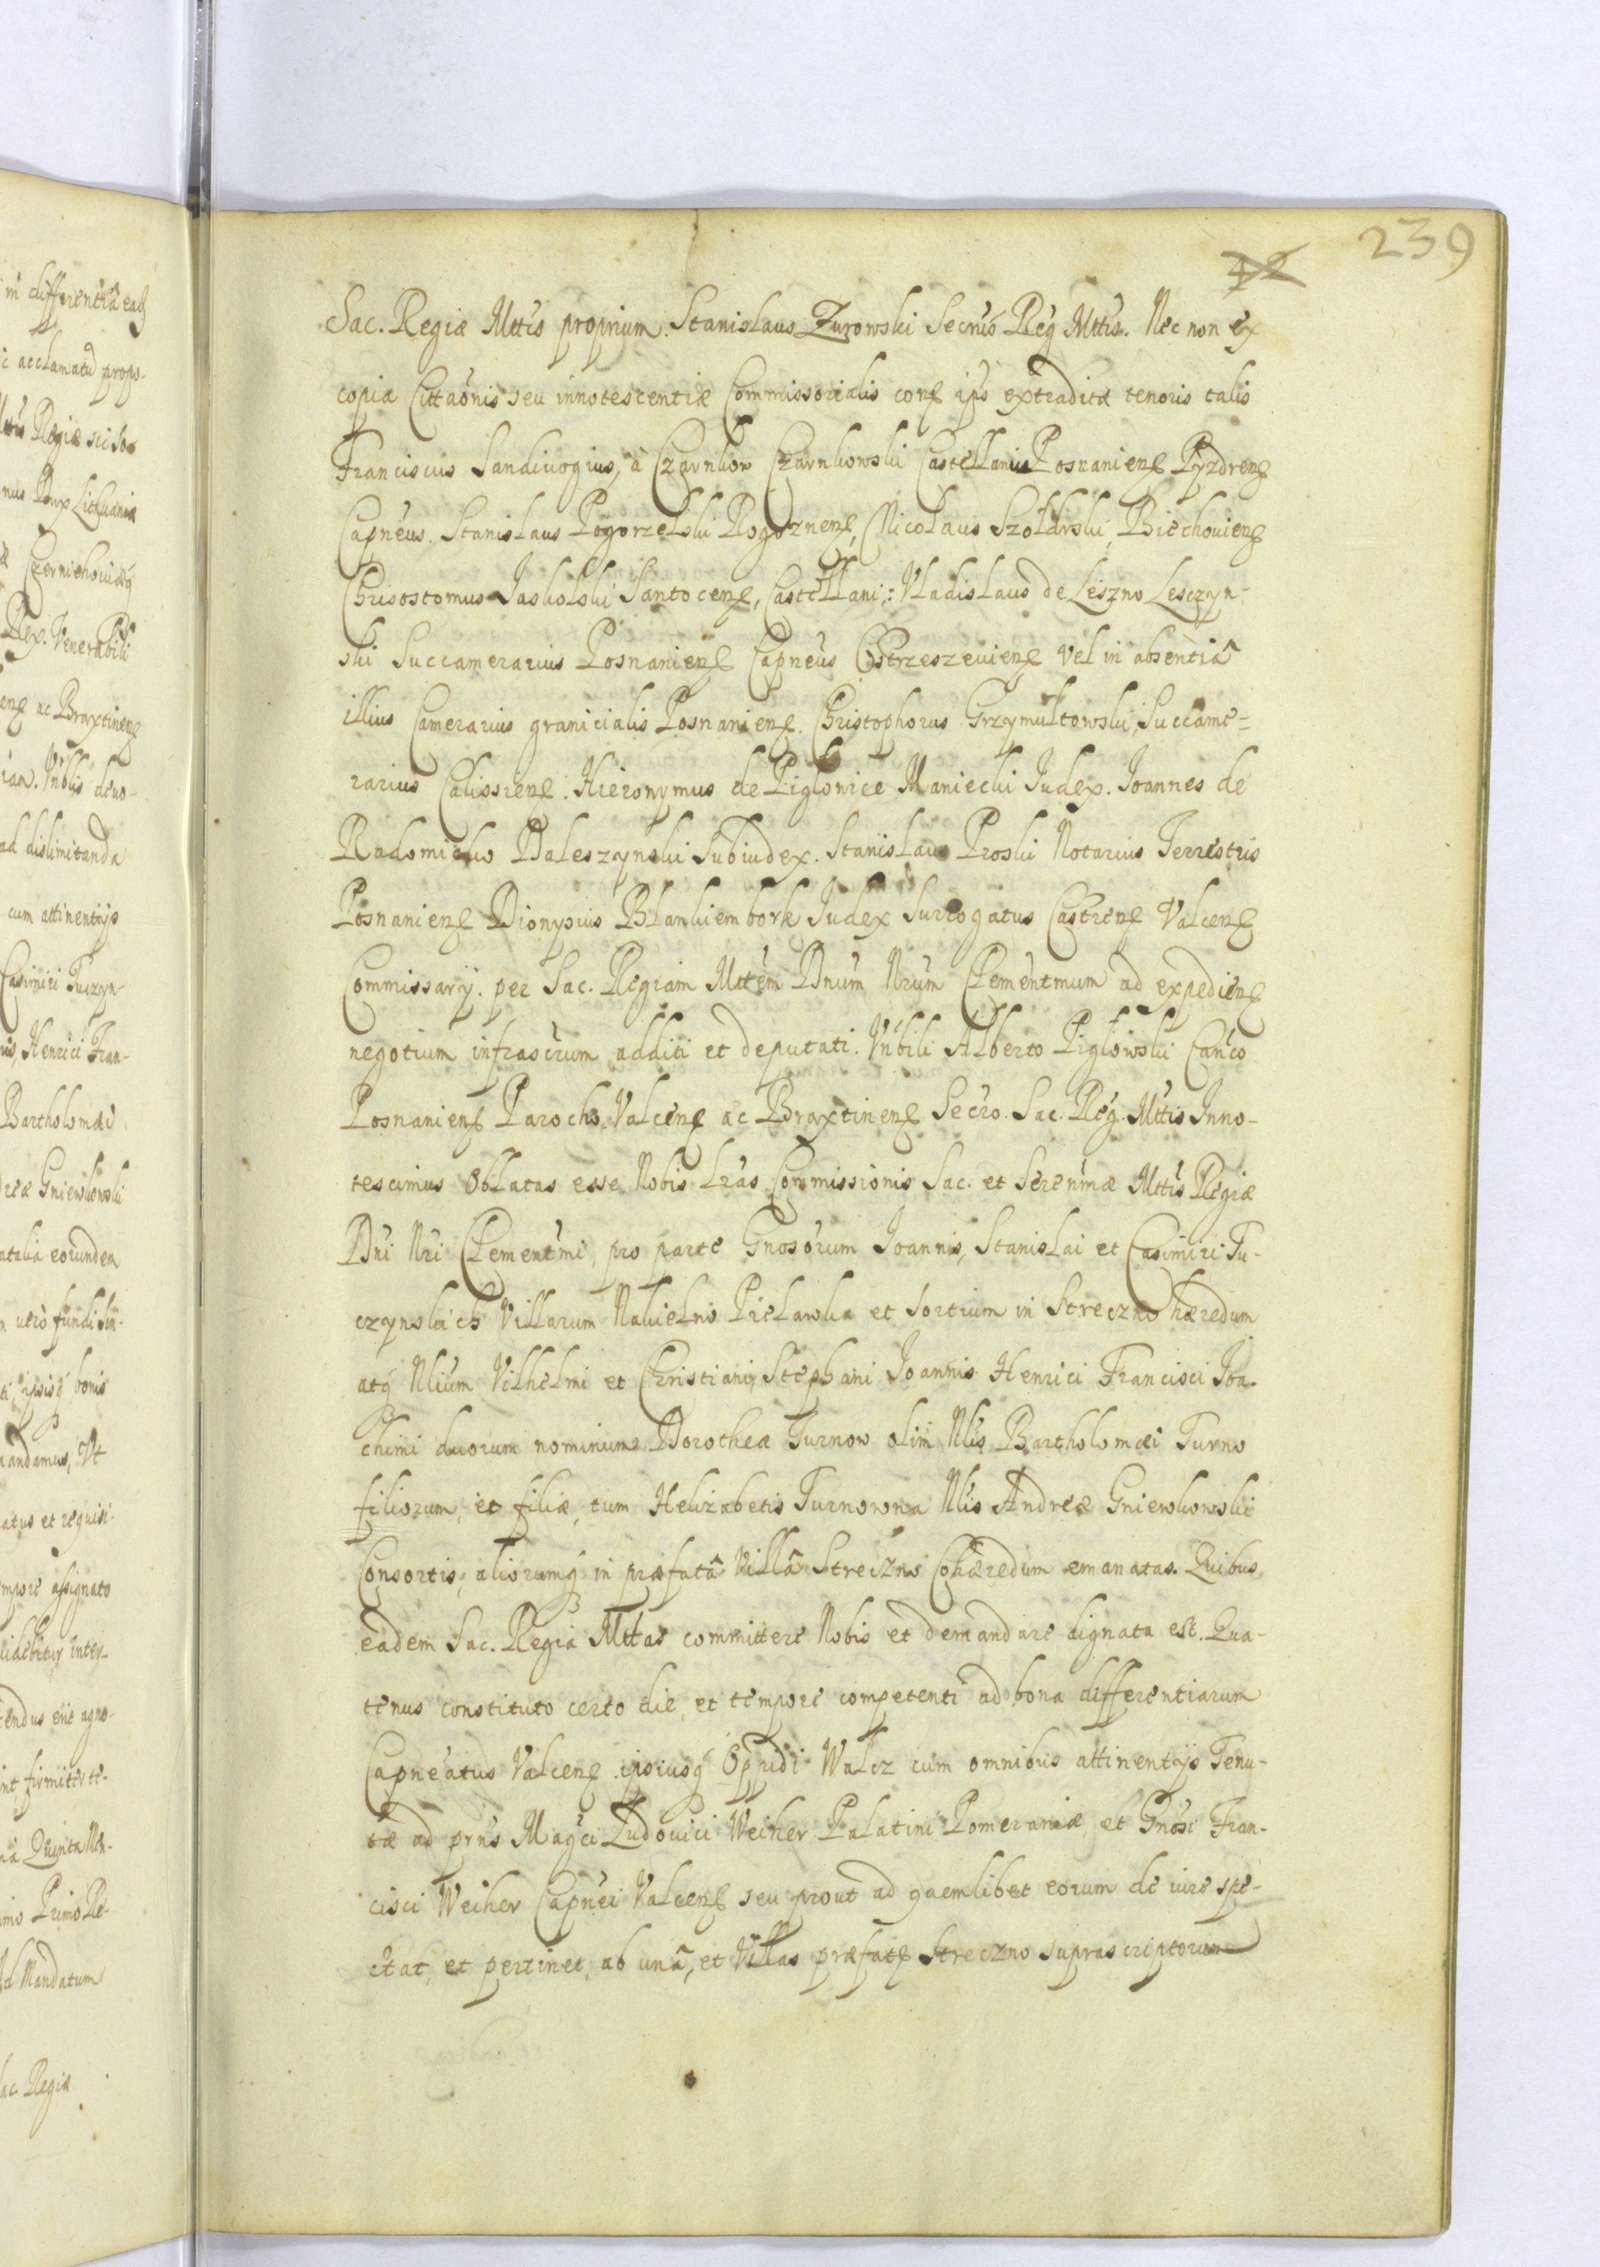 239
42
Sac. Regiæ Mttis proprium. Stanislaus Zurowski Secrius Reg Mttis. Nec non ex
copia Cittaonis seu innotescentiæ Commissorialis corą ips extraditæ tenoris talis
Franciscus Sandivogius, à Czarnkow Czarnkowski Castellanus Posnanienę Pyzdrenę
Capneus. Stanislaus Pogorzelski Rogoznenę, Nicolaus Szoldrski, Biechovienę
Chrisostomus Jaskolski Santocenę, Castellani: Vladislaus de Leszno Lesczyn-
ski Succamerarius Posnanienę Capneus Ostrzeszevienę vel in absentiâ
illius Camerarius granicialis Posnanienę. Christophorus Grzymultowski, Succame-
rarius Calissienę. Hieronymus de Piglowice Maniecki Judex. Joannes de
Radomicko Daleszynski Subiudex. Stanislaus Proski Notarius Terrestris
Posnanienę Dionysius Blankiembork Judex Surrogatus Castrenę Valcenę
Commissarij. per Sac. Regiam Mttem Dnum Nrum Clementmum ad expedienę
negotium infrascrum additi et deputati. Vnbili Alberto Piglowski Canco
Posnanienę Parocho Valcenę ac Braxtinenę Secro. Sac. Reg. Mttis Inno-
tescimus Oblatas esse Nobis Lras Commissionis Sac. et Serenmæ Mttis Regiæ
Dni Nri Clementmi, pro parte Gnosorum Joannis, Stanislai et Casimiri Tu-
czynskich Villarum Nakielno Pielawka et sortium in Streczno hæredum
atq Nlium Vilhelmi et Christiani, Stephani Joannis Henrici Francisci Joa-
chimi duorum nominum Dorotheæ Turnow olim Nlis Bartholomæi Turno
filiorum, et filiæ, tum Helizabetis Turnowna Nlis Andreæ Gniewkowski
Consortis, aliorumq in præfatâ Villâ Streczno Cohæredum emanatas. Quibus
eadem Sac. Regia Mttas committere Nobis et demandare dignata est. Qua-
tenus constituto certo die, et tempore competenti ad bona differentiarum
Capneatus Valcenę ipsiusq Oppidi Walcz cum omnibus attinentijs Tenu-
tæ ad prns Magci Ludovici Weiher Palatini Pomeraniæ, et Gnosi Fran-
cisci Weiher Capnei Valcenę seu prout ad quemlibet eorum de iure spe-
ctat, et pertinet, ab unâ, et Villas præfatę Streczno suprascriptorum